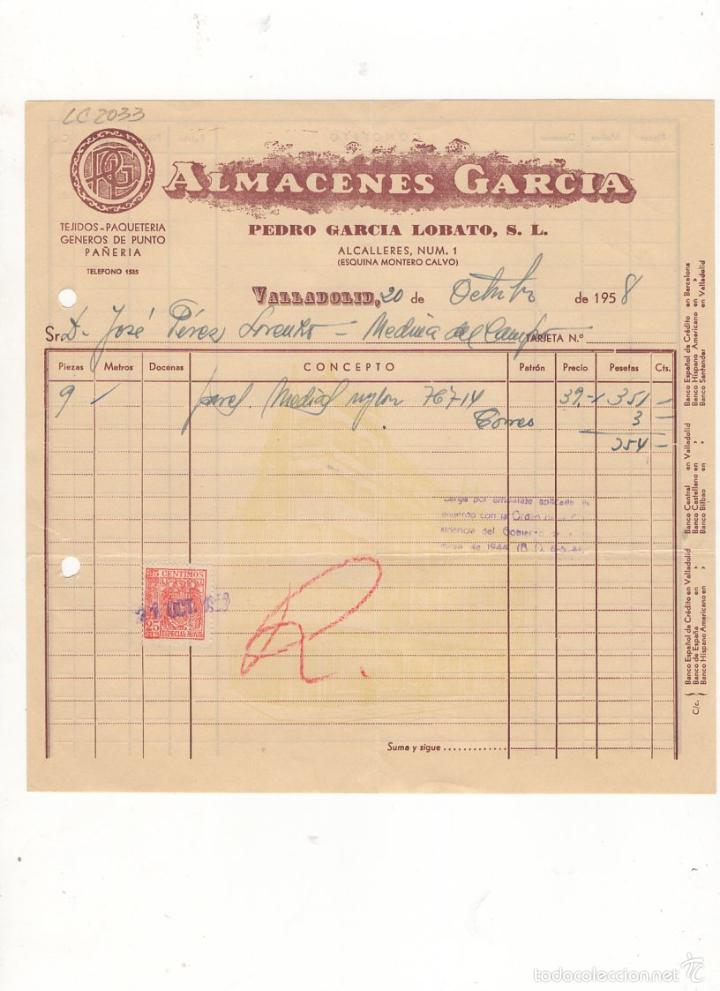 LC 2033
PGL
ALMACENES GARCIA
TEJIDOS-PAQUETERIA
GENEROS DE PUNTO
PAÑERIA
TELEFONO 1535
PEDRO GARCIA LOBATO, S. L.
ALCALLERES, NUM. 1
(ESQUINA MONTERO CALVO)
VALLADOLID, 20 de Octubre de 1958
Sr. D. José Pérez Lorenzo - Medina del Campo TARJETA N.º
Piezas Metros Docenas CONCEPTO Patrón Precio Pesetas Cts.
9 / Medias nylon 767-14 39,- 351 -
Correo 3 -
354 -
Cargo por embalaje aplicado de
acuerdo con la Orden de la
sidencia del Gobierno de
de 1944
25 CENTIMOS
21 OCT. 1958
25
ESPECIAL MOVIL
R.
Suma y sigue
C/c.
Banco Español de Crédito en Valladolid
Banco de España en »
Banco Hispano Americano en »
Banco Central en Valladolid
Banco Castellano en »
Banco Bilbao en »
Banco Español de Crédito en Barcelona
Banco Hispano Americano en »
Banco Santander en Valladolid
todocoleccion.net
TC